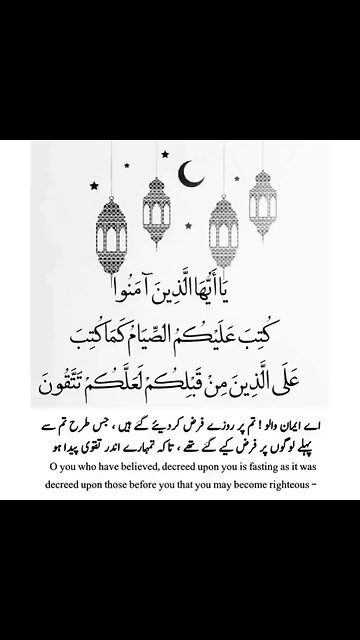 يَا أَيُّهَا الَّذِينَ آمَنُوا
كُتِبَ عَلَيْكُمُ الصِّيَامُ كَمَا كُتِبَ
عَلَى الَّذِينَ مِنْ قَبْلِكُمْ لَعَلَّكُمْ تَتَّقُونَ
اے ایمان والو ! تم پر روزے فرض کردیئے گئے ہیں ، جس طرح تم سے
پہلے لوگوں پر فرض کیے گئے تھے ، تاکہ تمہارے اندر تقویٰ پیدا ہو
O you who have believed, decreed upon you is fasting as it was
decreed upon those before you that you may become righteous -